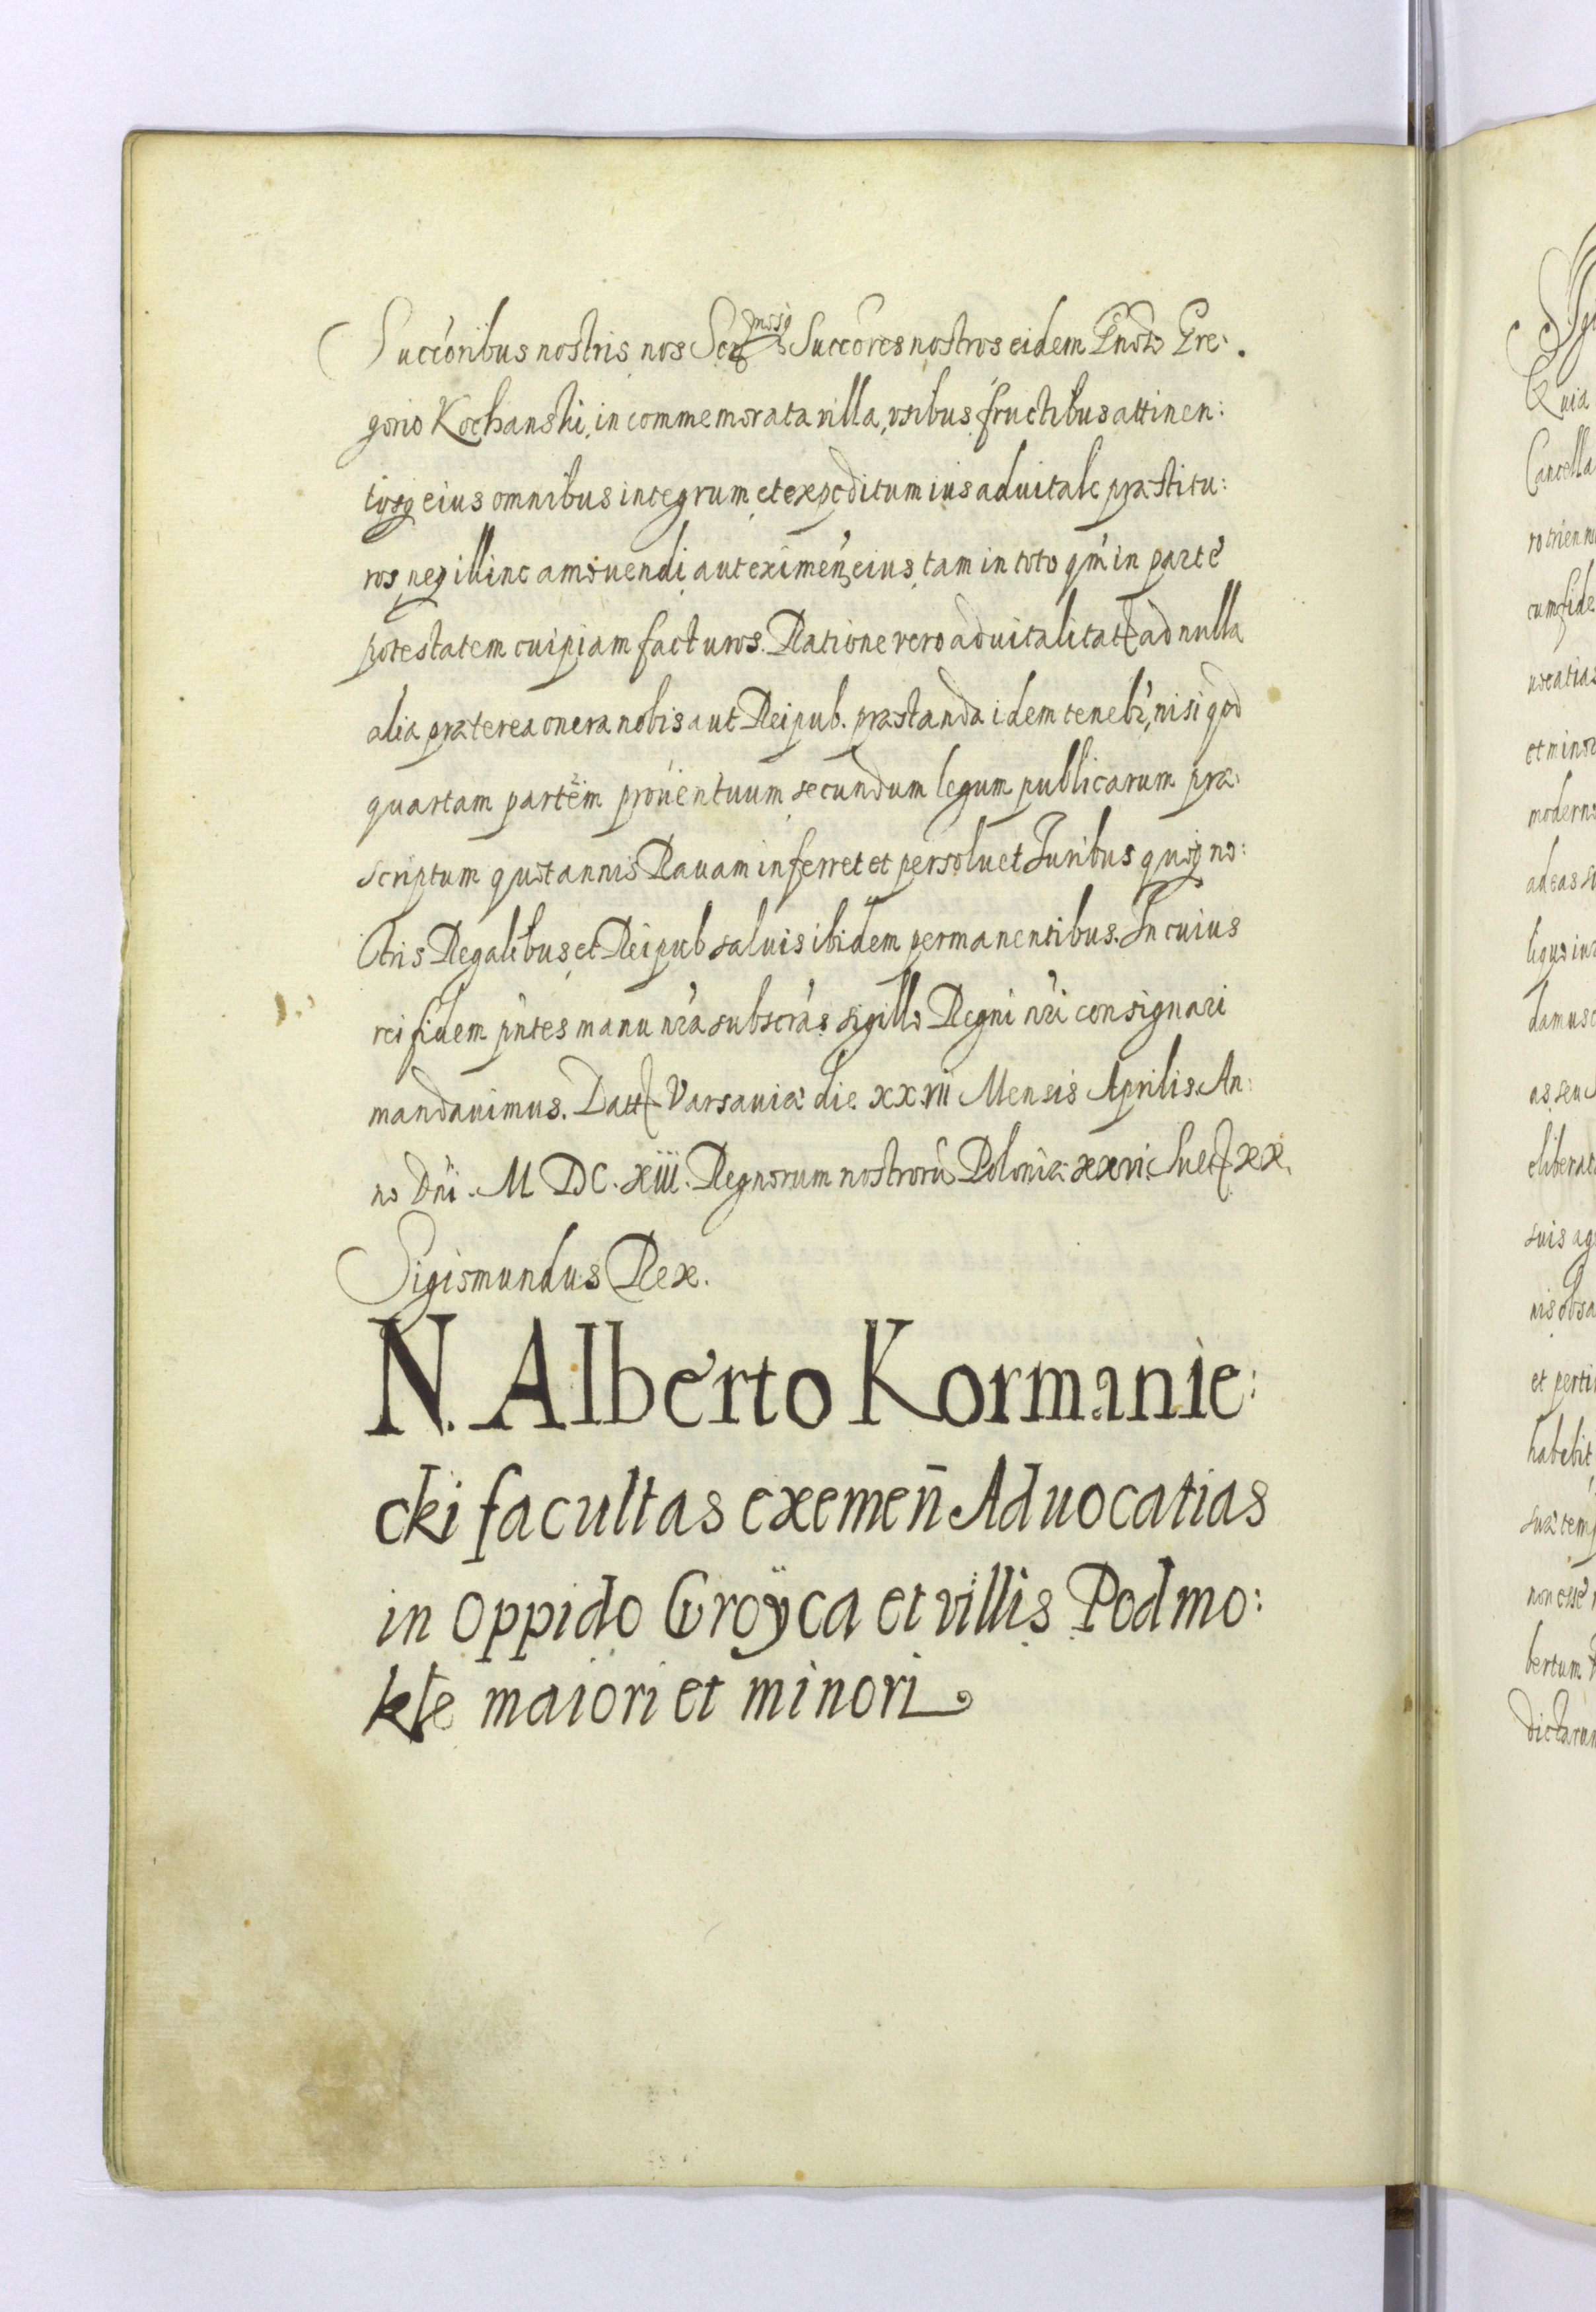 Succ̃oribus nostris nos Ser mosq Succ̃ores nostros eidem Gn̄oso Gre:
gorio Kochanski, in commemorata villa, vsibus fructibus attinen:
tijsq eius omnibus integrum et expeditum ius aduitale præstitu:
ros neq illinc amouendi aut eximen̄ eius tam in toto qm̄ in parte
potestatem cuipiam facturos. Ratione vero aduitalitatis ad nulla
alia præterea onera nobis aut Reipub. præstanda idem tenebr̃, nisi qd
quartam partem prouentuum secundum legum publicarum præ:
scriptum quotannis Rauam inferret et persoluet Iuribus quoq no:
stris Regalibus et Reipub saluis ibidem permanentibus. In cuius
rei fidem pn̄tes manu nr̃a subscr̃as sigillo Regni nr̃i consignari
mandauimus. Datt Varsauiæ die XXVII Mensis Aprilis. An:
no Dn̄i. M DC. XIII. Regnorum nostrorū Poloniæ XXVI. Suet XX.
Sigismundus Rex.
N. Alberto Kormanie:
cki facultas exemen̄ Aduocatias
in oppido Groÿca et villis Podmo:
kłe maiori et minori
Quia
Cancella
ro trienn
cum fide
uocatias
et minor
moderno
ad eas
damus
as seu
eliberat
suis ag
et perti
habebit
non esse
bertum
dictarum